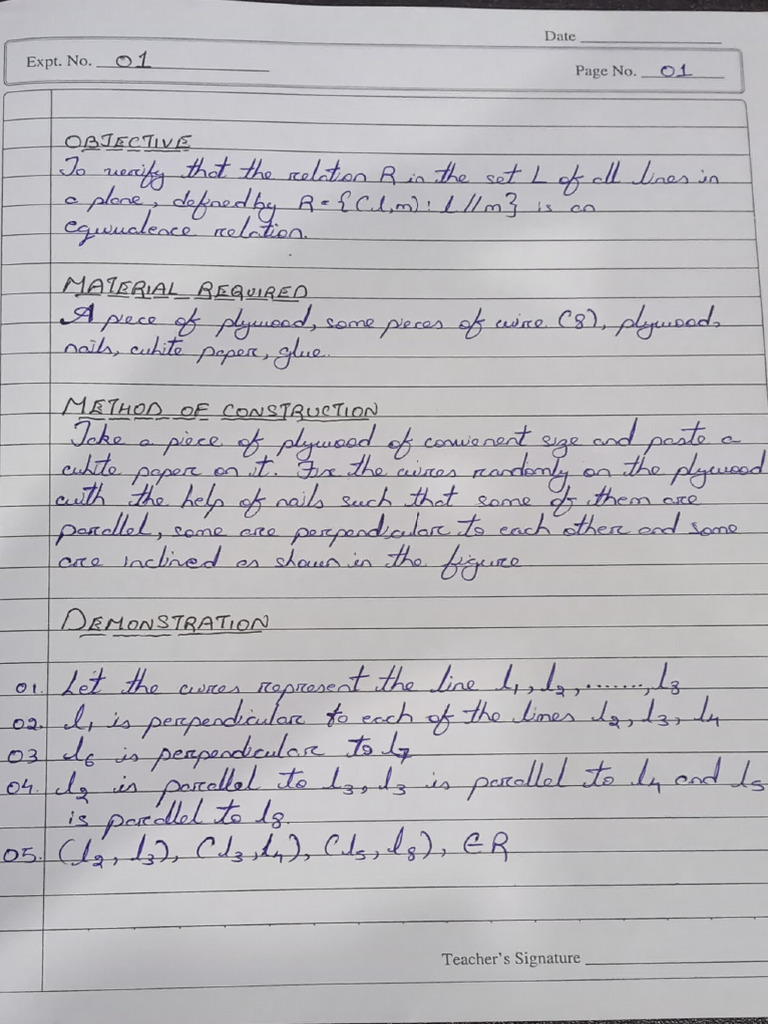 Date
Expt. No. 01
Page No. 01
OBJECTIVE
To verify that the relation R in the set L of all lines in
a plane, defined by R = {(l,m) : l // m} is an
equivalence relation.
MATERIAL REQUIRED
A piece of plywood, some pieces of wire (8), plywood,
nails, white paper, glue.
METHOD OF CONSTRUCTION
Take a piece of plywood of convienent size and paste a
white paper on it. Fix the wires randomly on the plywood
with the help of nails such that some of them are
parallel, some are perpendicular to each other and some
are inclined as shown in the figure
DEMONSTRATION
01. Let the wires represent the line l₁, l₂, ......., l₈
02. l₁ is perpendicular to each of the lines l₂, l₃, l₄
03 l₆ is perpendicular to l₇
04. l₂ is parallel to l₃, l₃ is parallel to l₄ and l₅
is parallel to l₈.
05. (l₂, l₃), (l₃, l₄), (l₅, l₈), ∈ R
Teacher's Signature